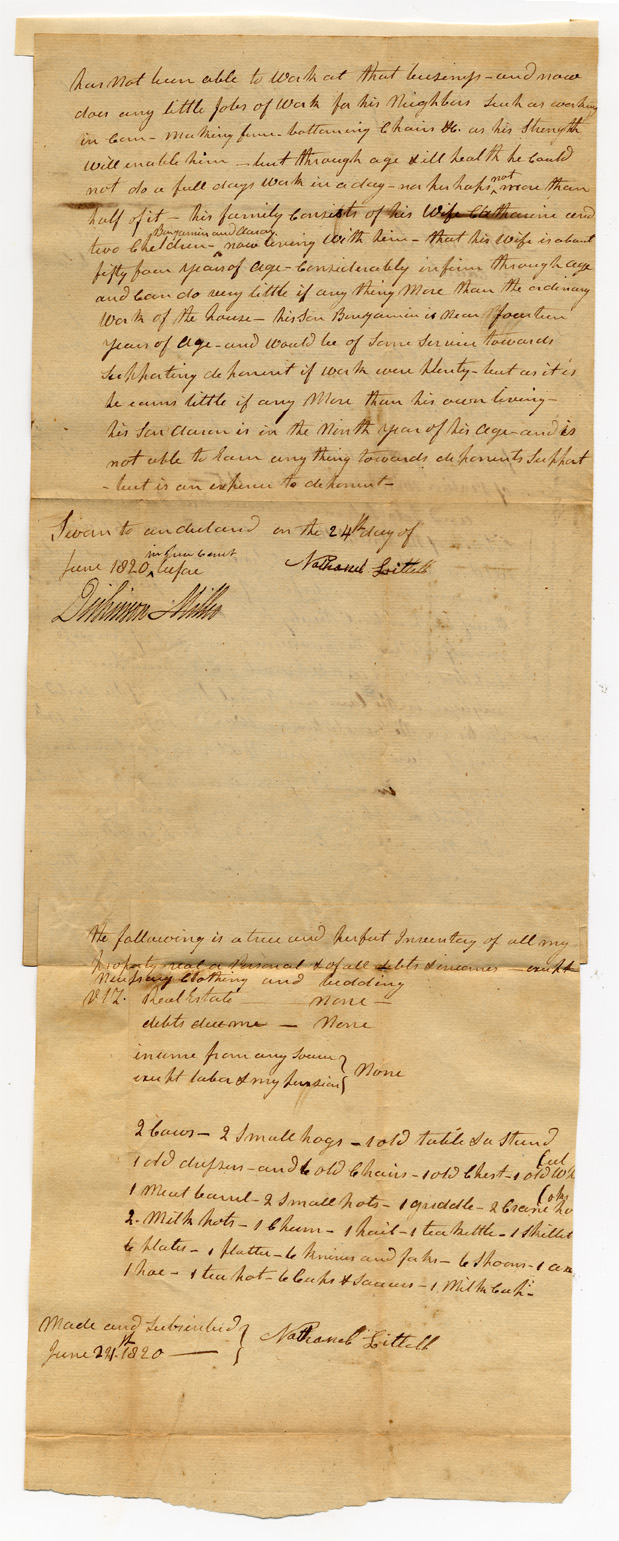 has not been able to work at that business – and now
does any little Jobs of work for his Neighbors such as working
in Corn – making fence – bottoming Chairs &c. as his Strength
will enable him – but through age & ill health he could
not do a full days work in a day – nor perhaps not more than
half of it – his family Consists of his Wife Catharine and
two Children – Benjamin and Aaron now living with him – that his Wife is about
fifty four years of age – Considerably infirm through age
and can do very little if any thing More than the ordinary
work of the house – his Son Benjamin is near fourteen
years of age – and would be of Some Service towards
Supporting deponent if work were plenty – but as it is
he earns little if any More than his own living –
his Son Aaron is in the Ninth year of his age – and is
not able to Earn any thing towards deponents Support
– but is an expence to deponent –
Sworn to and declared on the 24th day of
June 1820, in open Court before
Nathaniel Littell
Dickinson Miller
The following is a true and perfect Inventory of all my
property real & Personal & of all debts & incomes – except
Necessary Clothing and bedding
Viz. Real Estate – None –
debts due me – None
income from any Source
except labor & my pension } None
2 Cows – 2 Small hogs – 1 old table & a Stand
1 old dresser – and 6 old Chairs – 1 old Chest – 1 old
1 Meat barrel – 2 Small pots – 1 griddle – 2 Crane
2. Milk pots – 1 Churn – 1 pail – 1 tea kettle – 1 Skillet
6 plates – 1 platter – 6 knives and forks – 6 Spoons – 1 axe
1 hoe – 1 tea pot – 6 Cups & Saucers – 1 Milk Cup –
Made and Subscribed
June 24th 1820 – } Nathaniel Littell